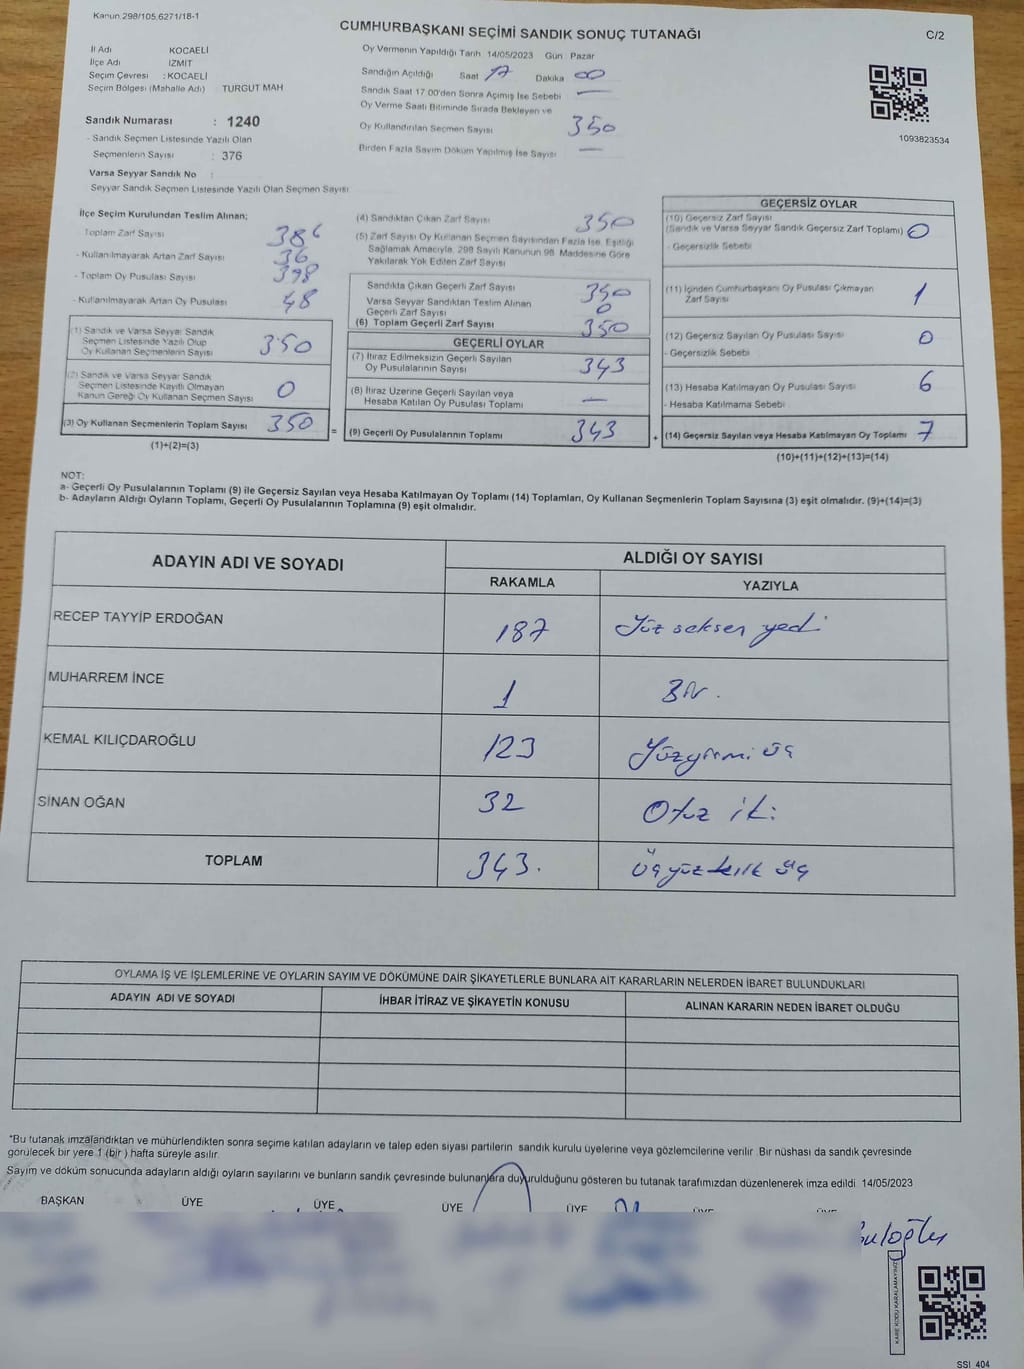 Kanun 298/105,6271/18-1
CUMHURBAŞKANI SEÇİMİ SANDIK SONUÇ TUTANAĞI
C/2
İl Adı KOCAELİ
İlçe Adı İZMİT
Seçim Çevresi : KOCAELİ
Seçim Bölgesi (Mahalle Adı) TURGUT MAH
Sandık Numarası : 1240
- Sandık Seçmen Listesinde Yazılı Olan
Seçmenlerin Sayısı : 376
Varsa Seyyar Sandık No :
Seyyar Sandık Seçmen Listesinde Yazılı Olan Seçmen Sayısı
Oy Vermenin Yapıldığı Tarih 14/05/2023 Gün Pazar
Sandığın Açıldığı Saat 17 Dakika 00
Sandık Saat 17.00'den Sonra Açılmış İse Sebebi —
Oy Verme Saati Bitiminde Sırada Bekleyen ve
Oy Kullandırılan Seçmen Sayısı 350
Birden Fazla Sayım Döküm Yapılmış İse Sayısı —
1093823534
İlçe Seçim Kurulundan Teslim Alınan;
Toplam Zarf Sayısı 386
- Kullanılmayarak Artan Zarf Sayısı 36
- Toplam Oy Pusulası Sayısı 398
- Kullanılmayarak Artan Oy Pusulası 48
(1) Sandık ve Varsa Seyyar Sandık
Seçmen Listesinde Yazılı Olup
Oy Kullanan Seçmenlerin Sayısı 350
(2) Sandık ve Varsa Seyyar Sandık
Seçmen Listesinde Kayıtlı Olmayan
Kanun Gereği Oy Kullanan Seçmen Sayısı 0
(3) Oy Kullanan Seçmenlerin Toplam Sayısı 350
(1)+(2)=(3)
(4) Sandıktan Çıkan Zarf Sayısı 350
(5) Zarf Sayısı Oy Kullanan Seçmen Sayısından Fazla İse, Eşitliği
Sağlamak Amacıyla, 298 Sayılı Kanunun 98. Maddesine Göre
Yakılarak Yok Edilen Zarf Sayısı
Sandıkta Çıkan Geçerli Zarf Sayısı 350
Varsa Seyyar Sandıktan Teslim Alınan
Geçerli Zarf Sayısı 0
(6) Toplam Geçerli Zarf Sayısı 350
GEÇERLİ OYLAR
(7) İtiraz Edilmeksizin Geçerli Sayılan
Oy Pusulalarının Sayısı 343
(8) İtiraz Üzerine Geçerli Sayılan veya
Hesaba Katılan Oy Pusulası Toplamı —
= (9) Geçerli Oy Pusulalarının Toplamı 343
GEÇERSİZ OYLAR
(10) Geçersiz Zarf Sayısı
(Sandık ve Varsa Seyyar Sandık Geçersiz Zarf Toplamı) 0
- Geçersizlik Sebebi
(11) İçinden Cumhurbaşkanı Oy Pusulası Çıkmayan
Zarf Sayısı 1
(12) Geçersiz Sayılan Oy Pusulası Sayısı 0
- Geçersizlik Sebebi
(13) Hesaba Katılmayan Oy Pusulası Sayısı 6
- Hesaba Katılmama Sebebi
+ (14) Geçersiz Sayılan veya Hesaba Katılmayan Oy Toplamı 7
(10)+(11)+(12)+(13)=(14)
NOT:
a- Geçerli Oy Pusulalarının Toplamı (9) ile Geçersiz Sayılan veya Hesaba Katılmayan Oy Toplamı (14) Toplamları, Oy Kullanan Seçmenlerin Toplam Sayısına (3) eşit olmalıdır. (9)+(14)=(3)
b- Adayların Aldığı Oyların Toplamı, Geçerli Oy Pusulalarının Toplamına (9) eşit olmalıdır.
ADAYIN ADI VE SOYADI ALDIĞI OY SAYISI
RAKAMLA YAZIYLA
RECEP TAYYİP ERDOĞAN 187 Yüz seksen yedi
MUHARREM İNCE 1 Bir.
KEMAL KILIÇDAROĞLU 123 Yüzyirmi üç
SİNAN OĞAN 32 Otuz iki
TOPLAM 343. üçyüz kırk üç
OYLAMA İŞ VE İŞLEMLERİNE VE OYLARIN SAYIM VE DÖKÜMÜNE DAİR ŞİKAYETLERLE BUNLARA AİT KARARLARIN NELERDEN İBARET BULUNDUKLARI
ADAYIN ADI VE SOYADI İHBAR İTİRAZ VE ŞİKAYETİN KONUSU ALINAN KARARIN NEDEN İBARET OLDUĞU
"Bu tutanak imzalandıktan ve mühürlendikten sonra seçime katılan adayların ve talep eden siyasi partilerin sandık kurulu üyelerine veya gözlemcilerine verilir. Bir nüshası da sandık çevresinde
görülecek bir yere 1 (bir) hafta süreyle asılır.
Sayım ve döküm sonucunda adayların aldığı oyların sayılarını ve bunların sandık çevresinde bulunanlara duyurulduğunu gösteren bu tutanak tarafımızdan düzenlenerek imza edildi. 14/05/2023
BAŞKAN ÜYE ÜYE ÜYE ÜYE ÜYE ÜYE
KARE KODU KARALAMAYINIZ
SSI_404